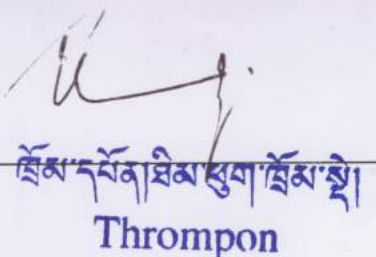 ཁྲོམ་དཔོན། ཐིམ་ཕུག་ཁྲོམ་སྡེ།
Thrompon